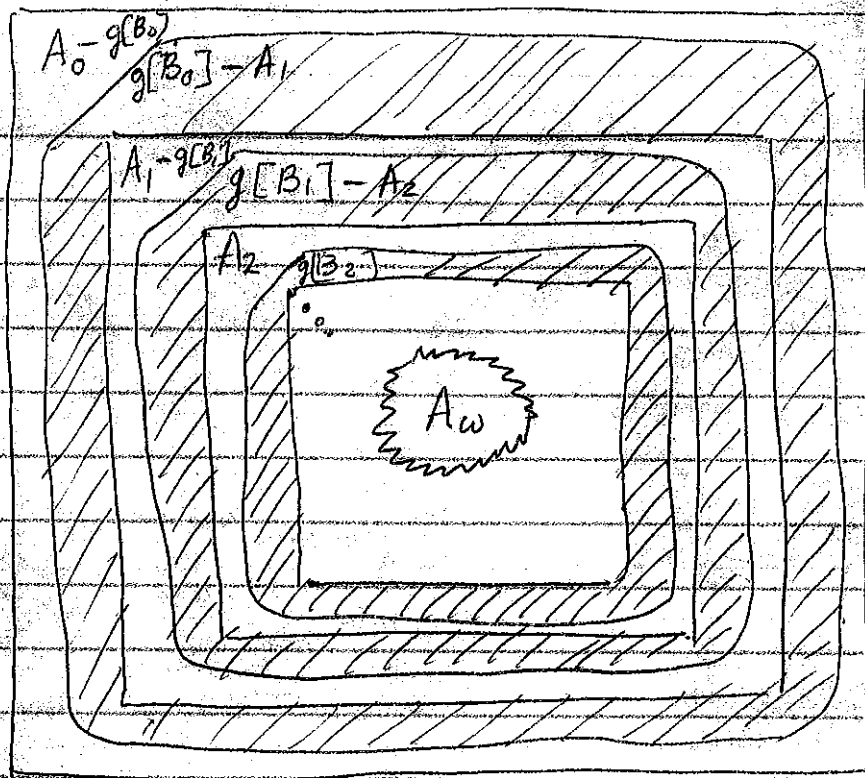 A₀ - g[B₀]
g[B₀] - A₁
A₁ - g[B₁]
g[B₁] - A₂
A₂
g[B₂]
A_ω